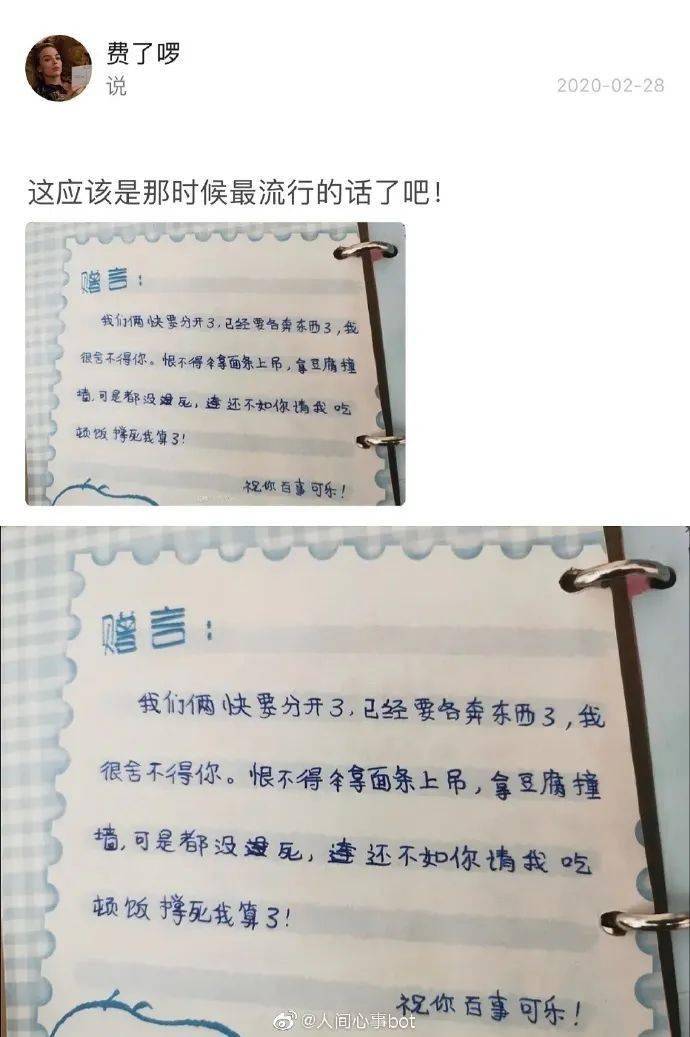 费了啰
说
2020-02-28
这应该是那时候最流行的话了吧！
赠言：
我们俩快要分开了，已经要各奔东西了，我
很舍不得你。恨不得拿面条上吊，拿豆腐撞
墙，可是都没死，还不如你请我吃
顿饭撑死我算了！
祝你百事可乐！
赠言：
我们俩快要分开了，已经要各奔东西了，我
很舍不得你。恨不得拿面条上吊，拿豆腐撞
墙，可是都没死，还不如你请我吃
顿饭撑死我算了！
祝你百事可乐！
@人间心事bot